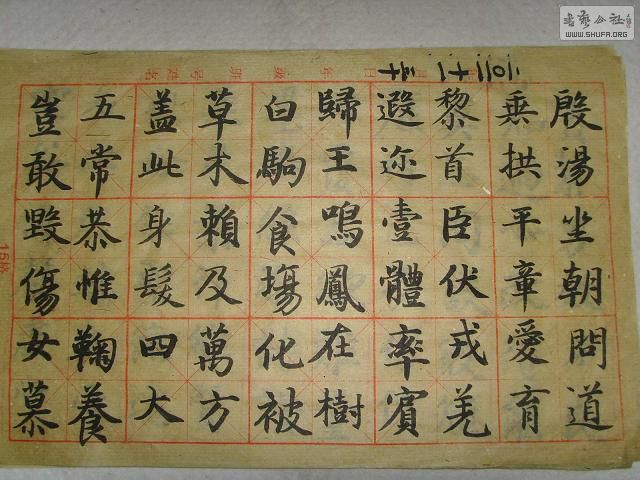 書藝公社
WWW.SHUFA.ORG
殷湯坐朝問道
垂拱平章愛育
黎首臣伏戎羌
遐迩壹體率賓
歸王鳴鳳在樹
白駒食塲化被
草木賴及萬方
盖此身髮四大
五常恭惟鞠養
豈敢毀傷女慕